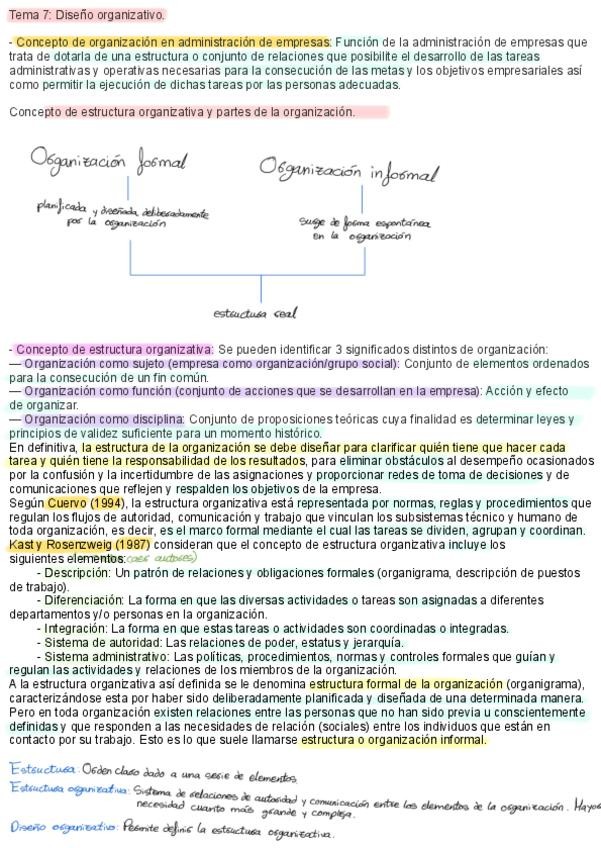 Tema 7: Diseño organizativo.
- Concepto de organización en administración de empresas: Función de la administración de empresas que
trata de dotarla de una estructura o conjunto de relaciones que posibilite el desarrollo de las tareas
administrativas y operativas necesarias para la consecución de las metas y los objetivos empresariales así
como permitir la ejecución de dichas tareas por las personas adecuadas.
Concepto de estructura organizativa y partes de la organización.
Organización formal
Organización informal
planificada y diseñada deliberadamente
por la organización
surge de forma espontánea
en la organización
estructura real
- Concepto de estructura organizativa: Se pueden identificar 3 significados distintos de organización:
— Organización como sujeto (empresa como organización/grupo social): Conjunto de elementos ordenados
para la consecución de un fin común.
— Organización como función (conjunto de acciones que se desarrollan en la empresa): Acción y efecto
de organizar.
— Organización como disciplina: Conjunto de proposiciones teóricas cuya finalidad es determinar leyes y
principios de validez suficiente para un momento histórico.
En definitiva, la estructura de la organización se debe diseñar para clarificar quién tiene que hacer cada
tarea y quién tiene la responsabilidad de los resultados, para eliminar obstáculos al desempeño ocasionados
por la confusión y la incertidumbre de las asignaciones y proporcionar redes de toma de decisiones y de
comunicaciones que reflejen y respalden los objetivos de la empresa.
Según Cuervo (1994), la estructura organizativa está representada por normas, reglas y procedimientos que
regulan los flujos de autoridad, comunicación y trabajo que vinculan los subsistemas técnico y humano de
toda organización, es decir, es el marco formal mediante el cual las tareas se dividen, agrupan y coordinan.
Kast y Rosenzweig (1987) consideran que el concepto de estructura organizativa incluye los
siguientes elementos: autores)
- Descripción: Un patrón de relaciones y obligaciones formales (organigrama, descripción de puestos
de trabajo).
- Diferenciación: La forma en que las diversas actividades o tareas son asignadas a diferentes
departamentos y/o personas en la organización.
- Integración: La forma en que estas tareas o actividades son coordinadas o integradas.
- Sistema de autoridad: Las relaciones de poder, estatus y jerarquía.
- Sistema administrativo: Las políticas, procedimientos, normas y controles formales que guían y
regulan las actividades y relaciones de los miembros de la organización.
A la estructura organizativa así definida se le denomina estructura formal de la organización (organigrama),
caracterizándose esta por haber sido deliberadamente planificada y diseñada de una determinada manera.
Pero en toda organización existen relaciones entre las personas que no han sido previa u conscientemente
definidas y que responden a las necesidades de relación (sociales) entre los individuos que están en
contacto por su trabajo. Esto es lo que suele llamarse estructura o organización informal.
Estructura: Orden claro dado a una serie de elementos
Estructura organizativa: Sistema de relaciones de autoridad y comunicación entre los elementos de la organización. Mayor
necesidad cuanto más grande y compleja.
Diseño organizativo: Permite definir la estructura organizativa.